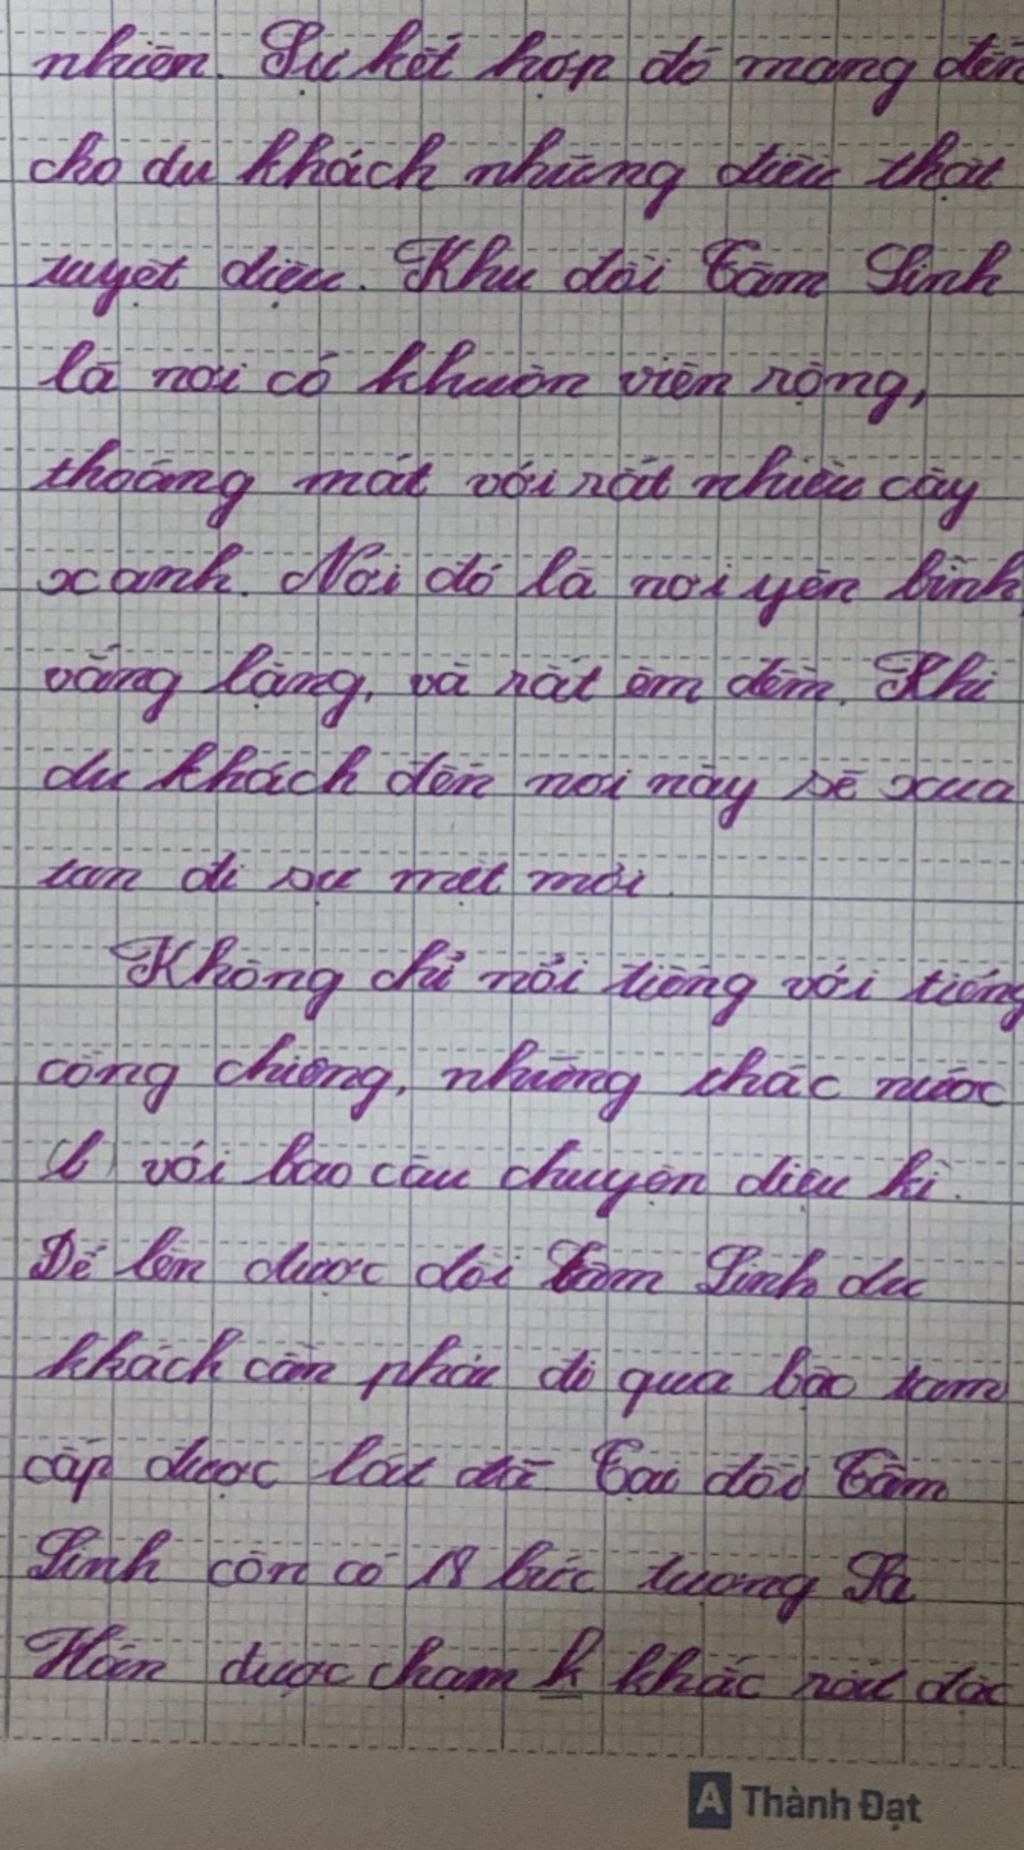 nhiên. Sự kết hợp đó mang đến
cho du khách những điều thật
tuyệt diệu. Khu đồi Tâm Linh
là nơi có khuôn viên rộng,
thoáng mát với rất nhiều cây
xanh. Nơi đó là nơi yên bình,
vắng lặng, và rất êm đềm. Khi
du khách đến nơi này sẽ xua
tan đi sự mệt mỏi.
Không chỉ nổi tiếng với tiếng
cồng chiêng, những thác nước
(b) với bao câu chuyện diệu kì.
Để lên được đồi Tâm Linh du
khách cần phải đi qua bậc tam
cấp được lát đá. Tại đồi Tâm
Linh còn có 18 bức tượng La
Hán được chạm k khắc rất đặc
A Thành Đạt